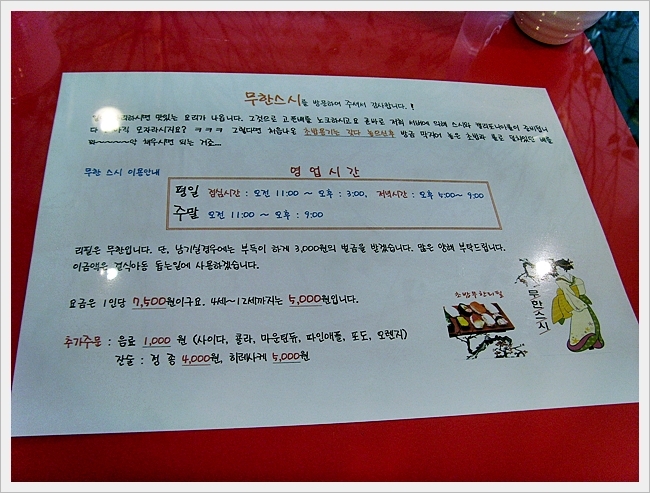 무한스시를 방문하여 주셔서 감사합니다. !
하시면 맛있는 요리가 나옵니다. 그것으로 고픈배를 노크하시고요 곧바로 저희 서버에 의해 스시와 캘리포니아롤이 준비됩니
다 아직 모자라시지요? ㅋㅋㅋ 그렇다면 처음나온 초밥용기는 갖다 놓으신후 방금 막지어 놓은 초밥과 롤로 못차있던 배를
꽈~~~~~악 채우시면 되는 거죠...
무한 스시 이용안내
영업시간
평일 점심시간 : 오전 11:00 ~ 오후 : 3:00, 저녁시간 : 오후 5:00~ 9:00
주말 오전 11:00 ~ 오후 : 9:00
리필은 무한입니다. 단, 남기실경우에는 부득이 하게 3,000원의 벌금을 받겠습니다. 많은 양해 부탁드립니다.
이금액은 결식아동 돕는일에 사용하겠습니다.
요금은 1인당 7,500원이구요. 4세~12세까지는 5,000원입니다.
초밥무한리필
무한스시
추가주문 : 음료 1,000 원 (사이다, 콜라, 마운틴듀, 파인애플, 포도, 오렌지)
잔술 : 정 종 4,000원, 히레사케 5,000원